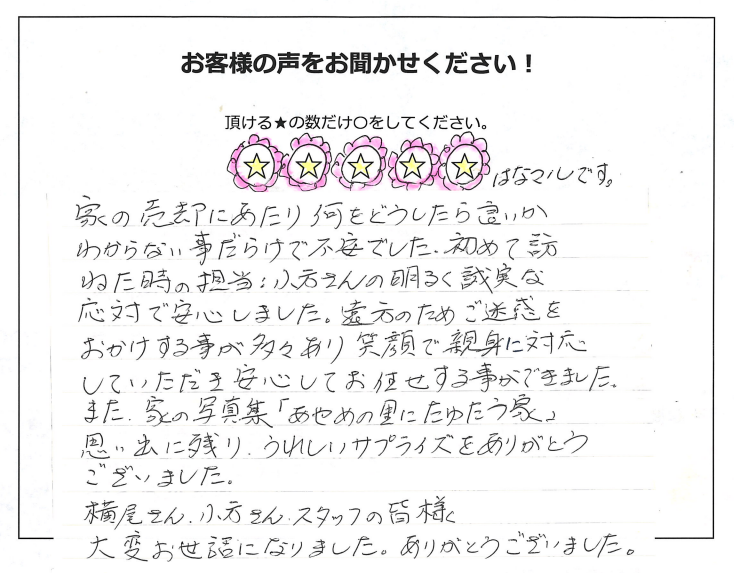 お客様の声をお聞かせください！
頂ける★の数だけ〇をしてください。
はなマルです。
家の売却にあたり何をどうしたら言いか
わからない事だらけで不安でした。初めて訪
ねた時の担当：小方さんの明るく誠実な
応対で安心しました。遠方のためご迷惑を
おかけする事が多々あり笑顔で親身に対応
していただき安心してお任せする事ができました。
また、家の写真集「あやめの里にたゆたう家」
思い出に残り、うれしいサプライズをありがとう
ございました。
横尾さん、小方さん、スタッフの皆様
大変お世話になりました。ありがとうございました。